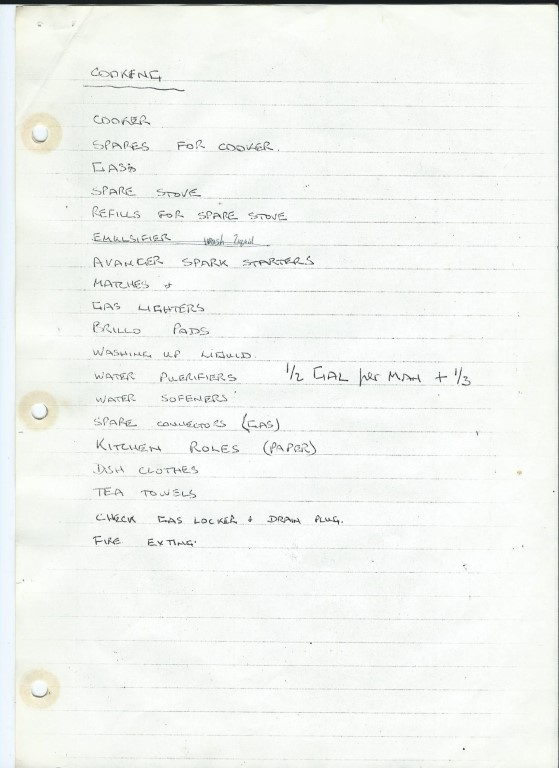 COOKENG
COOKER
SPARES FOR COOKER.
GASS
SPARE STOVE
REFILLS FOR SPARE STOVE
EMULSIFIER Wash liquid
SPARK STARTERS
MATCHES &
GAS LIGHTERS
BRILLO PADS
WASHING UP LIQUID.
WATER PUERIFIERS 1/2 GAL per MAN + 1/3
WATER SOFENERS
SPARE CONNECTORS (GAS)
KITCHEN ROLES (PAPER)
DISH CLOTHES
TEA TOWELS
CHECK GAS LOCKER & DRAIN PLUG.
FIRE EXTING.